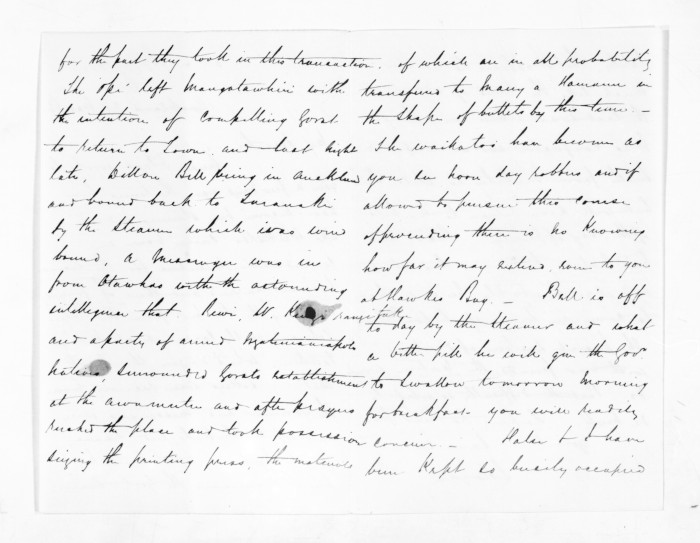 for the part they took in this transaction.
The 'Opi' left Mangatawhiri with
the intention of compelling Gorst
to return to Town and last night
late, Dillon Bell being in Auckland
and bound back to Taranaki
by the Steamer which was wind
bound, a Messenger was in
from Otawhao with the astounding
intelligence that Rewi, W. Kingi Rangitake
and a party of armed Ngatimaniapoto
natives, surrounded Gorsts establishment
at the awamutu and after prayers
rushed the place and took possession
seizing the printing press, the materials
of which are in all probability
transfered to many a Hamann in
the shape of bullets by this time. -
The waikatos have become as
you see noon day robbers and if
allowed to pursue this course
offending there is no Knowing
how far it may extend, even to you
at Hawkes Bay. - Bell is off
to day by the Steamer and what
a bitter pill he will give the Govr
to Swallow tomorrow Morning
for breakfast you will readily
conceive. - Halse & I have
been Kept so busily occupied